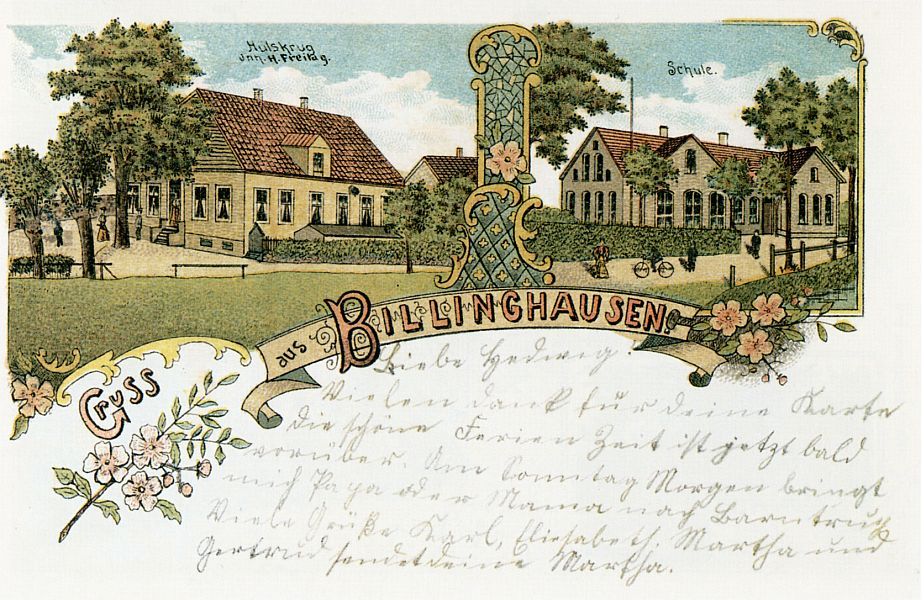 Hulskrug
Inh. H. Freitag.
Schule.
Gruss
aus
BILLINGHAUSEN.
Liebe Hedwig!
Vielen dank für deine Karte
die schöne Ferien Zeit ist jetzt bald
vorüber. Am Sonntag Morgen bringt
mich Papa oder Mama nach Barntrup
Viele Grüße Karl, Elisabeth, Martha und
Gertrud sendet deine Martha.